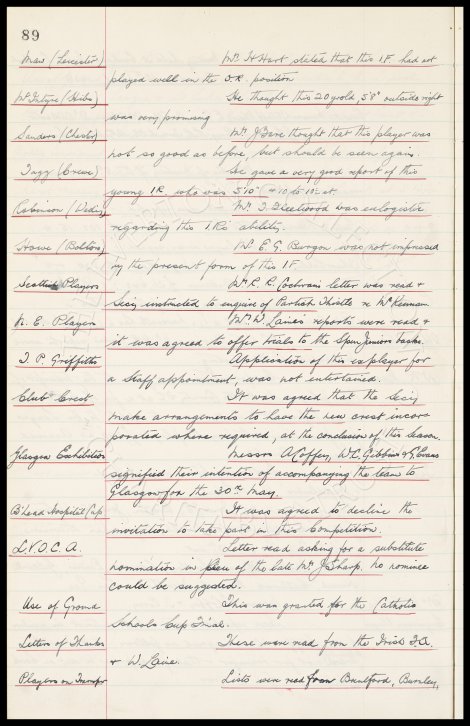 89
Maw (Leicester) Mr. H. Hart stated that this I.F. had not
played well in the O.R. position
McIntyre (Hibs) He thought this 20 yr old, 5'8" outside right
was very promising
Sanders (Chester) Mr. J. Bare thought that this player was
not so good as before, but should be seen again.
Jagg (Crewe) He gave a very good report of this
young I.R. who was 5'10"
Robinson Mr. T. Fleetwood was eulogistic
regarding this I.R's ability.
Howe (Bolton) Mr. E. G. Burgon was not impressed
by the present form of this I.F.
Scottish Players Mr. R. R. Cochran's letter was read &
Secy instructed to enquire of Partick Thistle re McKennan.
N. E. Players Mr. W. Laine's reports were read &
it was agreed to offer trials to the Juniors backs.
T. P. Griffiths Application of this explayer for
a Staff appointment, was not entertained.
Club Crest It was agreed that the Secy
make arrangements to have the new crest incor
porated where required, at the conclusion of this season.
Glasgow Exhibition Messrs A. Coffey, W.C. Gibbins & G. Evans
signified their intention of accompanying the team to
Glasgow for the 30th May.
B'head Hospital Cup It was agreed to decline the
invitation to take part in this Competition.
L.V.O.C.A. Letter read asking for a substitute
nomination in lieu of the late Mr. J. Sharp, no nominee
could be suggested.
Use of Ground This was granted for the Catholic
Schools Cup Final.
Letters of Thanks These were read from the Irish F.A.
& W. Laine.
Players on Transfer Lists were read from Brentford, Burnley,